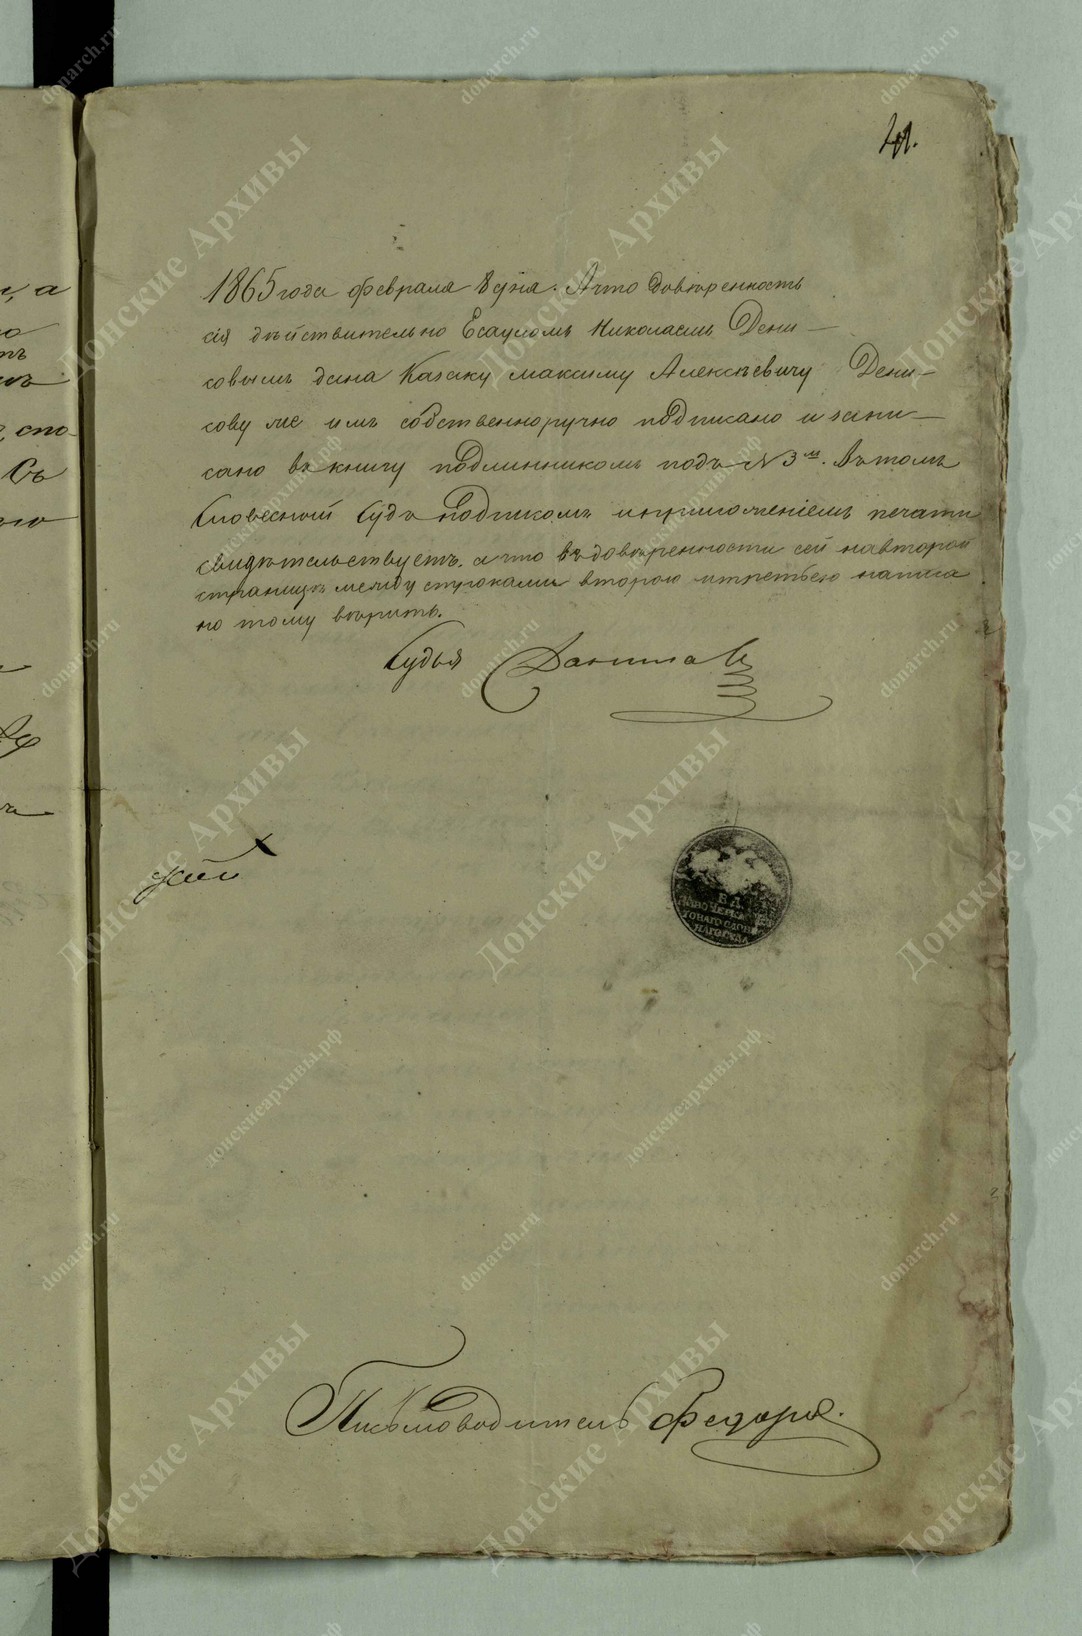 41.
1865 года февраля 8 дня. А что довѣренность
сія дѣйствительно Есауломъ Николаемъ Дени-
совымъ дана Казаку Максиму Алексѣевичу Дени-
сову же имъ собственноручно подписано и запи-
сано въ книгу подлинникомъ подъ № 3 м. Въ томъ
Словесный Судъ подписомъ и приложеніемъ печати
свидѣтельствуетъ. а что въ довѣренности сей на второй
страницѣ между строками второю и третьею написа
но тому вѣрить.
Судья
В. Д.
НОВОЧЕРКАС
ТОВАГО СЛОВЕС
НАГО СУДА
Письмоводитель
Донские Архивы
donarch.ru
донскиеархивы.рф